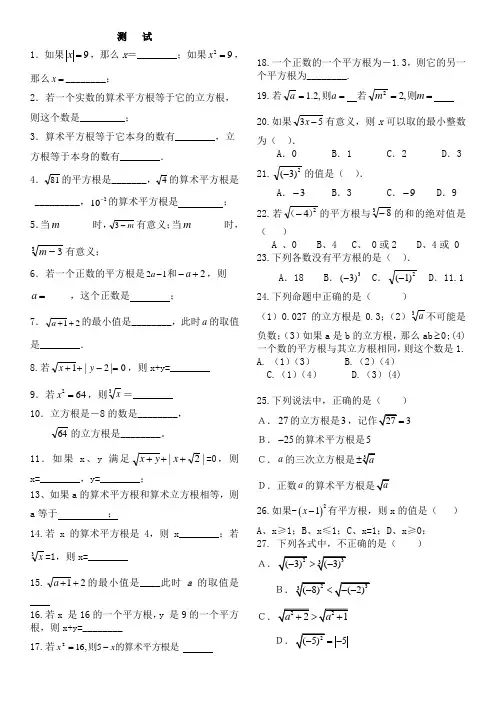 测 试
1．如果|x|=9，那么x＝________；如果x²=9，
那么x=________；
2．若一个实数的算术平方根等于它的立方根，
则这个数是_________；
3．算术平方根等于它本身的数有________，立
方根等于本身的数有________．
4．√81的平方根是_______，√4的算术平方根是
_________，10⁻²的算术平方根是 ；
5．当m______时，√(3−m)有意义；当m______时，
∛(m−3)有意义；
6．若一个正数的平方根是2a−1和−a+2，则
a=____，这个正数是 ；
7．√(a+1)+2的最小值是________，此时a的取值
是________．
8.若√(x+1)+|y−2|=0，则x+y=________
9．若x²=64，则∛x＝________
10．立方根是－8的数是________，
√64的立方根是________。
11．如果x、y满足√(x+y)+|x+2|=0，则
x=________，y=_______；
13、如果a的算术平方根和算术立方根相等，则
a等于 ；
14.若x的算术平方根是4，则x_______；若
∛x=1，则x=_______
15.√(a+1)+2的最小值是____此时a的取值是
____
16.若x 是16的一个平方根，y 是9的一个平方
根，则x+y=________
17.若x²=16,则5−x的算术平方根是
18.一个正数的一个平方为－1.3，则它的另一
个平方为________.
19.若√a=1.2,则a= 若√m²=2,则m=
20.如果√(3x−5)有意义，则x可以取的最小整数
为（ ）．
A．0 B．1 C．2 D．3
21.√(−3)²的值是（ ）．
A．−3 B．3 C．−9 D．9
22.若√(−4)²的平方根与∛−8的和的绝对值是
（ ）
A 、0 B、4 C、 0或2 D、4或 0
23.下列各数没有平方根的是（ ）．
A．18 B．(−3)³ C．√(−1)² D．11.1
24.下列命题中正确的是（ ）
（1）0.027的立方根是0.3；（2）∛a不可能是
负数；（3）如果a是b的立方根，那么ab≥0;(4)
一个数的平方根与其立方根相同，则这个数是1.
A.（1）（3） B.（2）（4）
C.（1）（4） D.（3）(4)
25.下列说法中，正确的是（ ）
A．27的立方根是3，记作√27=3
B．−25的算术平方根是5
C．a的三次立方根是±∛a
D．正数a的算术平方根是√a
26.如果-(x−1)²有平方根，则x的值是（ ）
A、x≥1；B、x≤1；C、x=1；D、x≥0；
27. 下列各式中，不正确的是（ ）